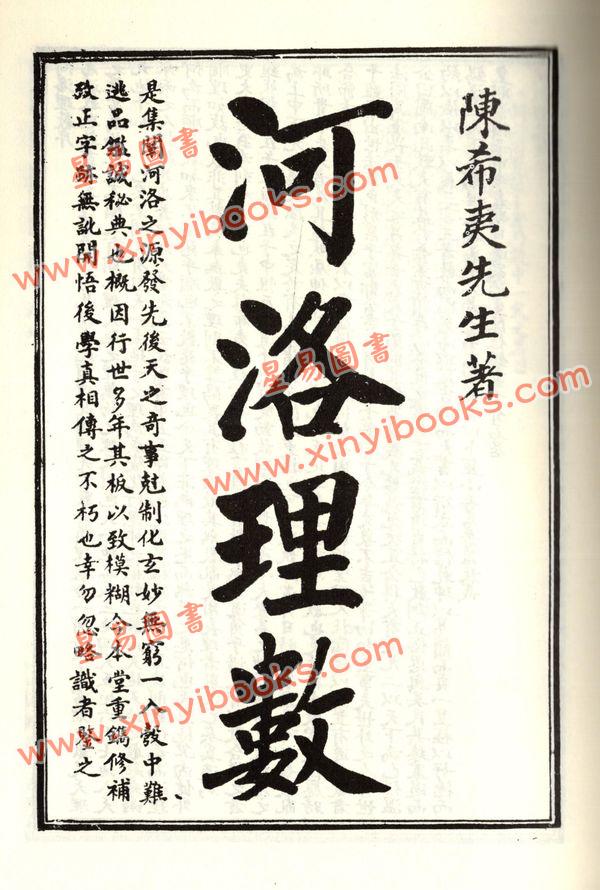 陳希夷先生著
河洛理數
是集闡河洛之源發先後天之奇事尅制化玄妙無窮一入彀中難
逃品鑑誠秘典也概因行世多年其板以致模糊今本堂重鐫修補
攷正字跡無訛開悟後學真相傳之不朽也幸勿忽略識者鑒之
星易圖書
www.xinyibooks.com
星易圖書
www.xinyibooks.com
www.xinyibooks.com
星易圖書
www.xinyibooks.com